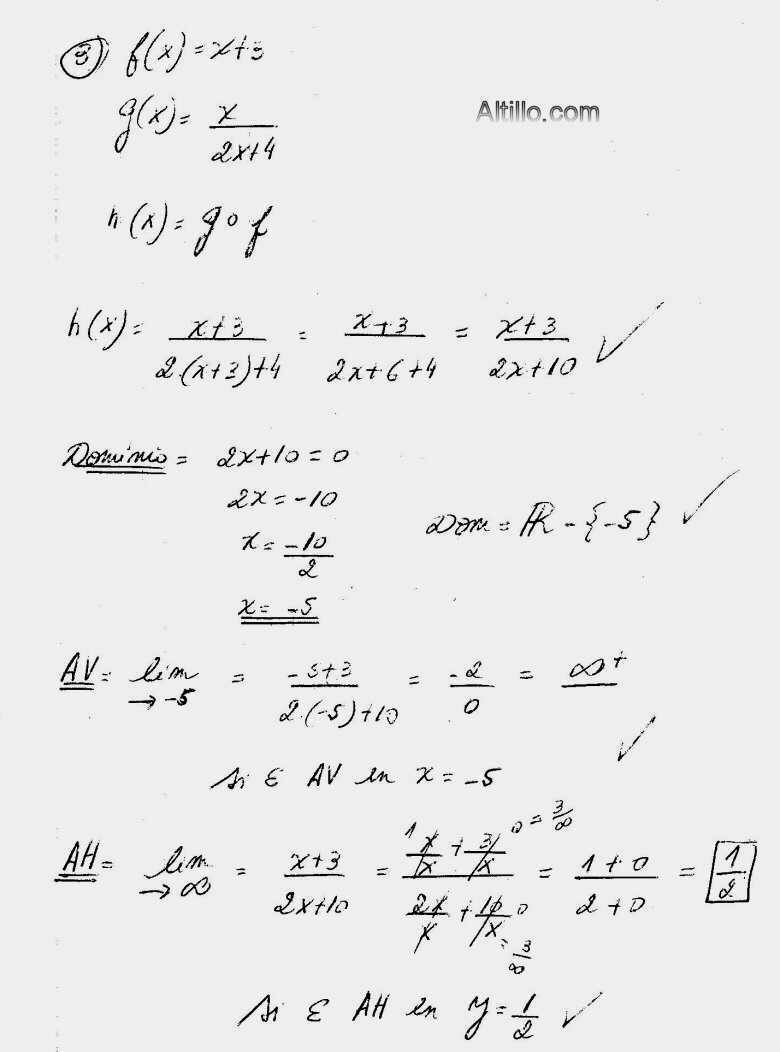 ③ f(x) = x+3
Altillo.com
g(x) = x/(2x+4)
h(x) = g∘f
h(x) = (x+3)/(2.(x+3)+4) = (x+3)/(2x+6+4) = (x+3)/(2x+10) ✓
Dominio = 2x+10=0
2x = -10
x = -10/2
Dom = ℝ - {-5} ✓
x = -5
AV = lim →-5 = (-5+3)/(2.(-5)+10) = -2/0 = ∞⁺
✓
si ∃ AV en x = -5
AH = lim →∞ = (x+3)/(2x+10) = (x/x + 3/x)/(2x/x + 10/x) = (1+0)/(2+0) = 1/2
1 0 = 3/∞
0 = 3/∞
si ∃ AH en y = 1/2 ✓